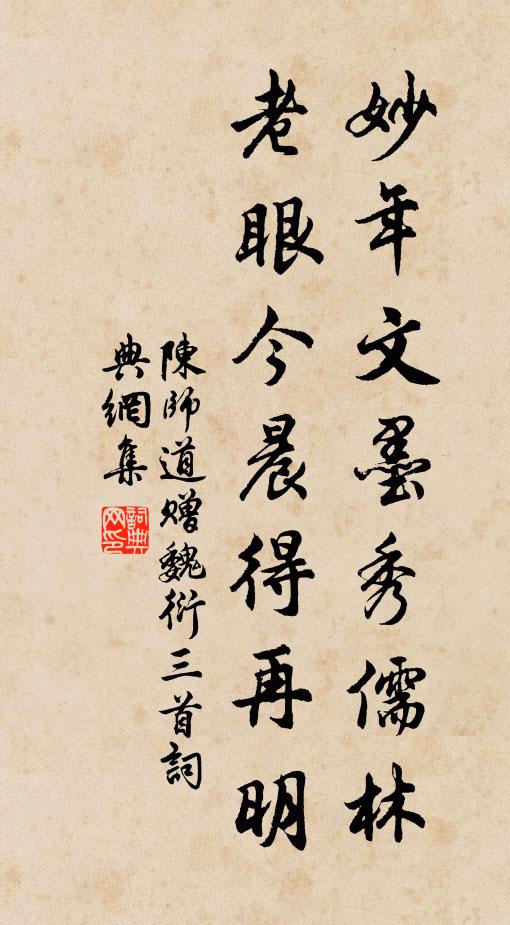 妙年文墨秀儒林
老眼今晨得再明
陳師道贈魏衍三首詞
典網集
詞典
网印